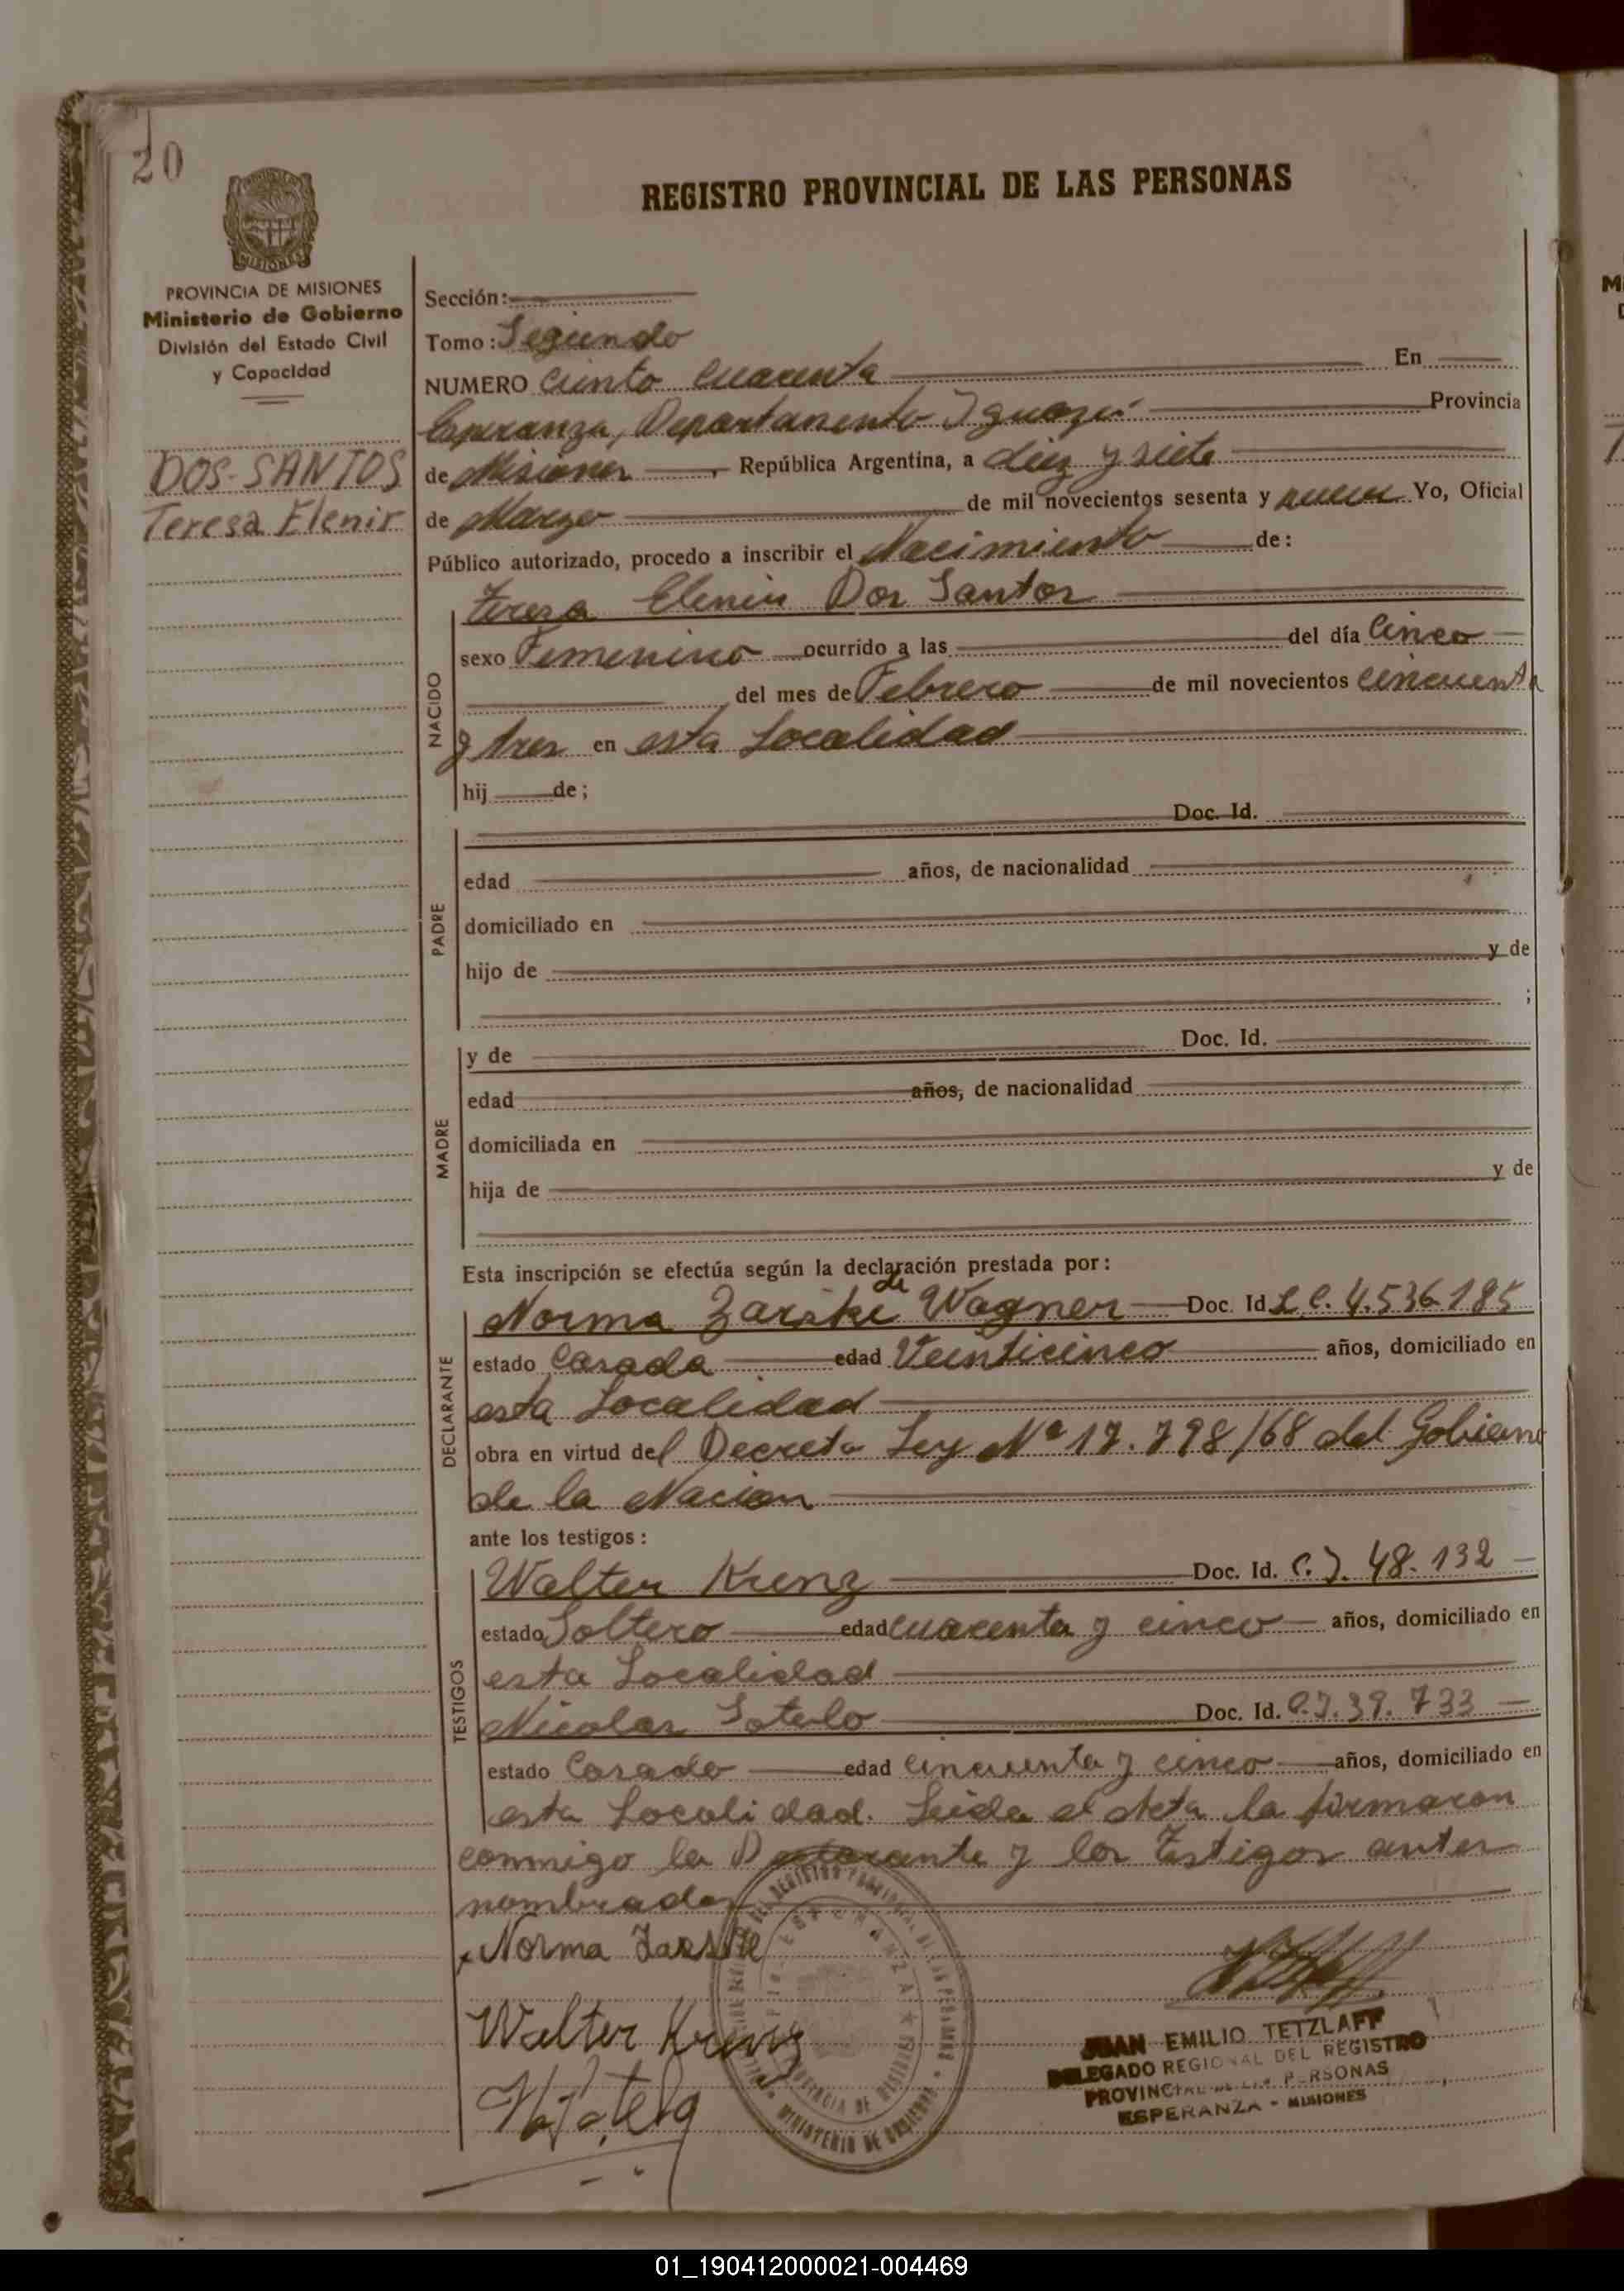 20
REGISTRO PROVINCIAL DE LAS PERSONAS
MISIONES
PROVINCIA DE MISIONES
Ministerio de Gobierno
División del Estado Civil
y Capacidad
DOS-SANTOS
Teresa Elenir
Sección:
Tomo: Segundo
NUMERO Ciento Cuarenta En
Esperanza, Departamento Iguazú Provincia
de Misiones, República Argentina, a diez y siete
de Marzo de mil novecientos sesenta y nueve Yo, Oficial
Público autorizado, procedo a inscribir el Nacimiento de:
Teresa Elenir Dos Santos
NACIDO
sexo Femenino ocurrido a las del día Cinco
del mes de Febrero de mil novecientos cincuenta
y tres en esta Localidad
hij de;
PADRE
Doc. Id.
edad años, de nacionalidad
domiciliado en
hijo de y de
;
MADRE
y de Doc. Id.
edad años, de nacionalidad
domiciliada en
hija de y de
Esta inscripción se efectúa según la declaración prestada por:
DECLARANTE
Norma Zarske de Wagner Doc. Id L.C. 4.536.185
estado Casada edad Veinticinco años, domiciliado en
esta Localidad
obra en virtud del Decreto Ley Nº 17.798/68 del Gobierno
de la Nacion
ante los testigos:
TESTIGOS
Walter Krenz Doc. Id. C.I. 48.132
estado Soltero edad cuarenta y cinco años, domiciliado en
esta Localidad
Nicolas Sotelo Doc. Id. C.I. 39.733
estado Casado edad cincuenta y cinco años, domiciliado en
esta Localidad. Leida el Acta la firmaron
conmigo la Declarante y los Testigos antes
nombrados
Norma Zarske
Walter Krenz
N. Sotelo
JUAN EMILIO TETZLAFF
DELEGADO REGIONAL DEL REGISTRO
PROVINCIAL DE LAS PERSONAS
ESPERANZA - MISIONES
01_190412000021-004469